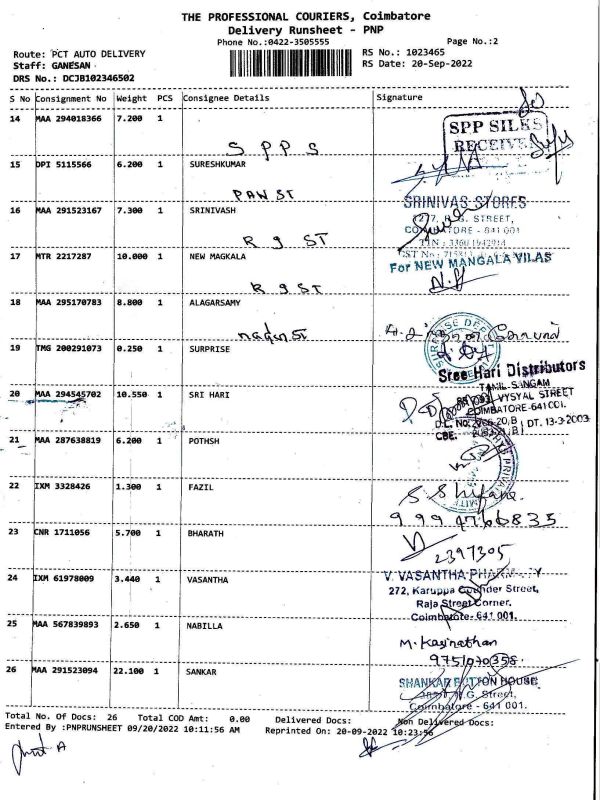 THE PROFESSIONAL COURIERS, Coimbatore
Delivery Runsheet - PNP
Phone No.:0422-3505555 Page No.:2
Route: PCT AUTO DELIVERY RS No.: 1023465
Staff: GANESAN RS Date: 20-Sep-2022
DRS No.: DCJB102346502
S No Consignment No Weight PCS Consignee Details Signature
14 MAA 294018366 7.200 1
SPP SILKS
RECEIVED
S P P S
15 DPI 5115566 6.200 1 SURESHKUMAR
PAW ST
SRINIVAS STORES
16 MAA 291523167 7.300 1 SRINIVASH
STREET,
COIMBATORE - 641 001
R g ST
17 MTR 2217287 10.000 1 NEW MAGKALA
For NEW MANGALA VILAS
R g ST
18 MAA 295170783 8.800 1 ALAGARSAMY
19 TMG 200291073 0.250 1 SURPRISE
Sree Hari Distributors
TAMIL SANGAM
20 MAA 294545702 10.550 1 SRI HARI
VYSYAL STREET
COIMBATORE-641001.
D.L. No. 20,B DT. 13-3-2003
CBE.
21 MAA 287638819 6.200 1 POTHSH
22 IXM 3328426 1.300 1 FAZIL
9994766835
23 CNR 1711056 5.700 1 BHARATH
2397305
24 IXM 61978009 3.440 1 VASANTHA
V. VASANTHA PHARMACY
272, Karuppa Gounder Street,
Raja Street Corner,
Coimbatore- 641 001.
25 MAA 567839893 2.650 1 NABILLA
M. Kasinathan
9751070358
26 MAA 291523094 22.100 1 SANKAR
SHANKAR BUTTON HOUSE
Street,
Coimbatore - 641 001.
Total No. Of Docs: 26 Total COD Amt: 0.00 Delivered Docs: Non Delivered Docs:
Entered By :PNPRUNSHEET 09/20/2022 10:11:56 AM Reprinted On: 20-09-2022 10:23:56